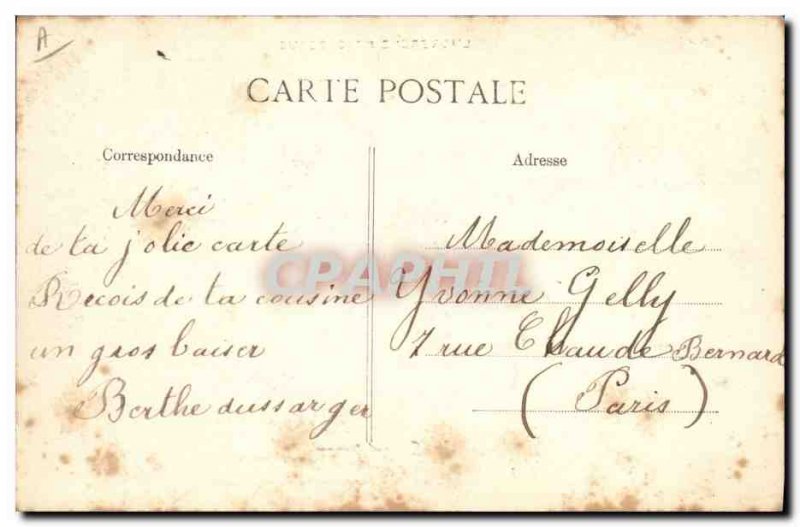 A
CARTE POSTALE
Correspondance
Merci
de ta jolie carte
Recois de ta cousine
un gros baiser
Berthe dussarger
Adresse
Mademoiselle
Yvonne Gelly
7 rue Claude Bernard
(Paris)
CPAPHIL